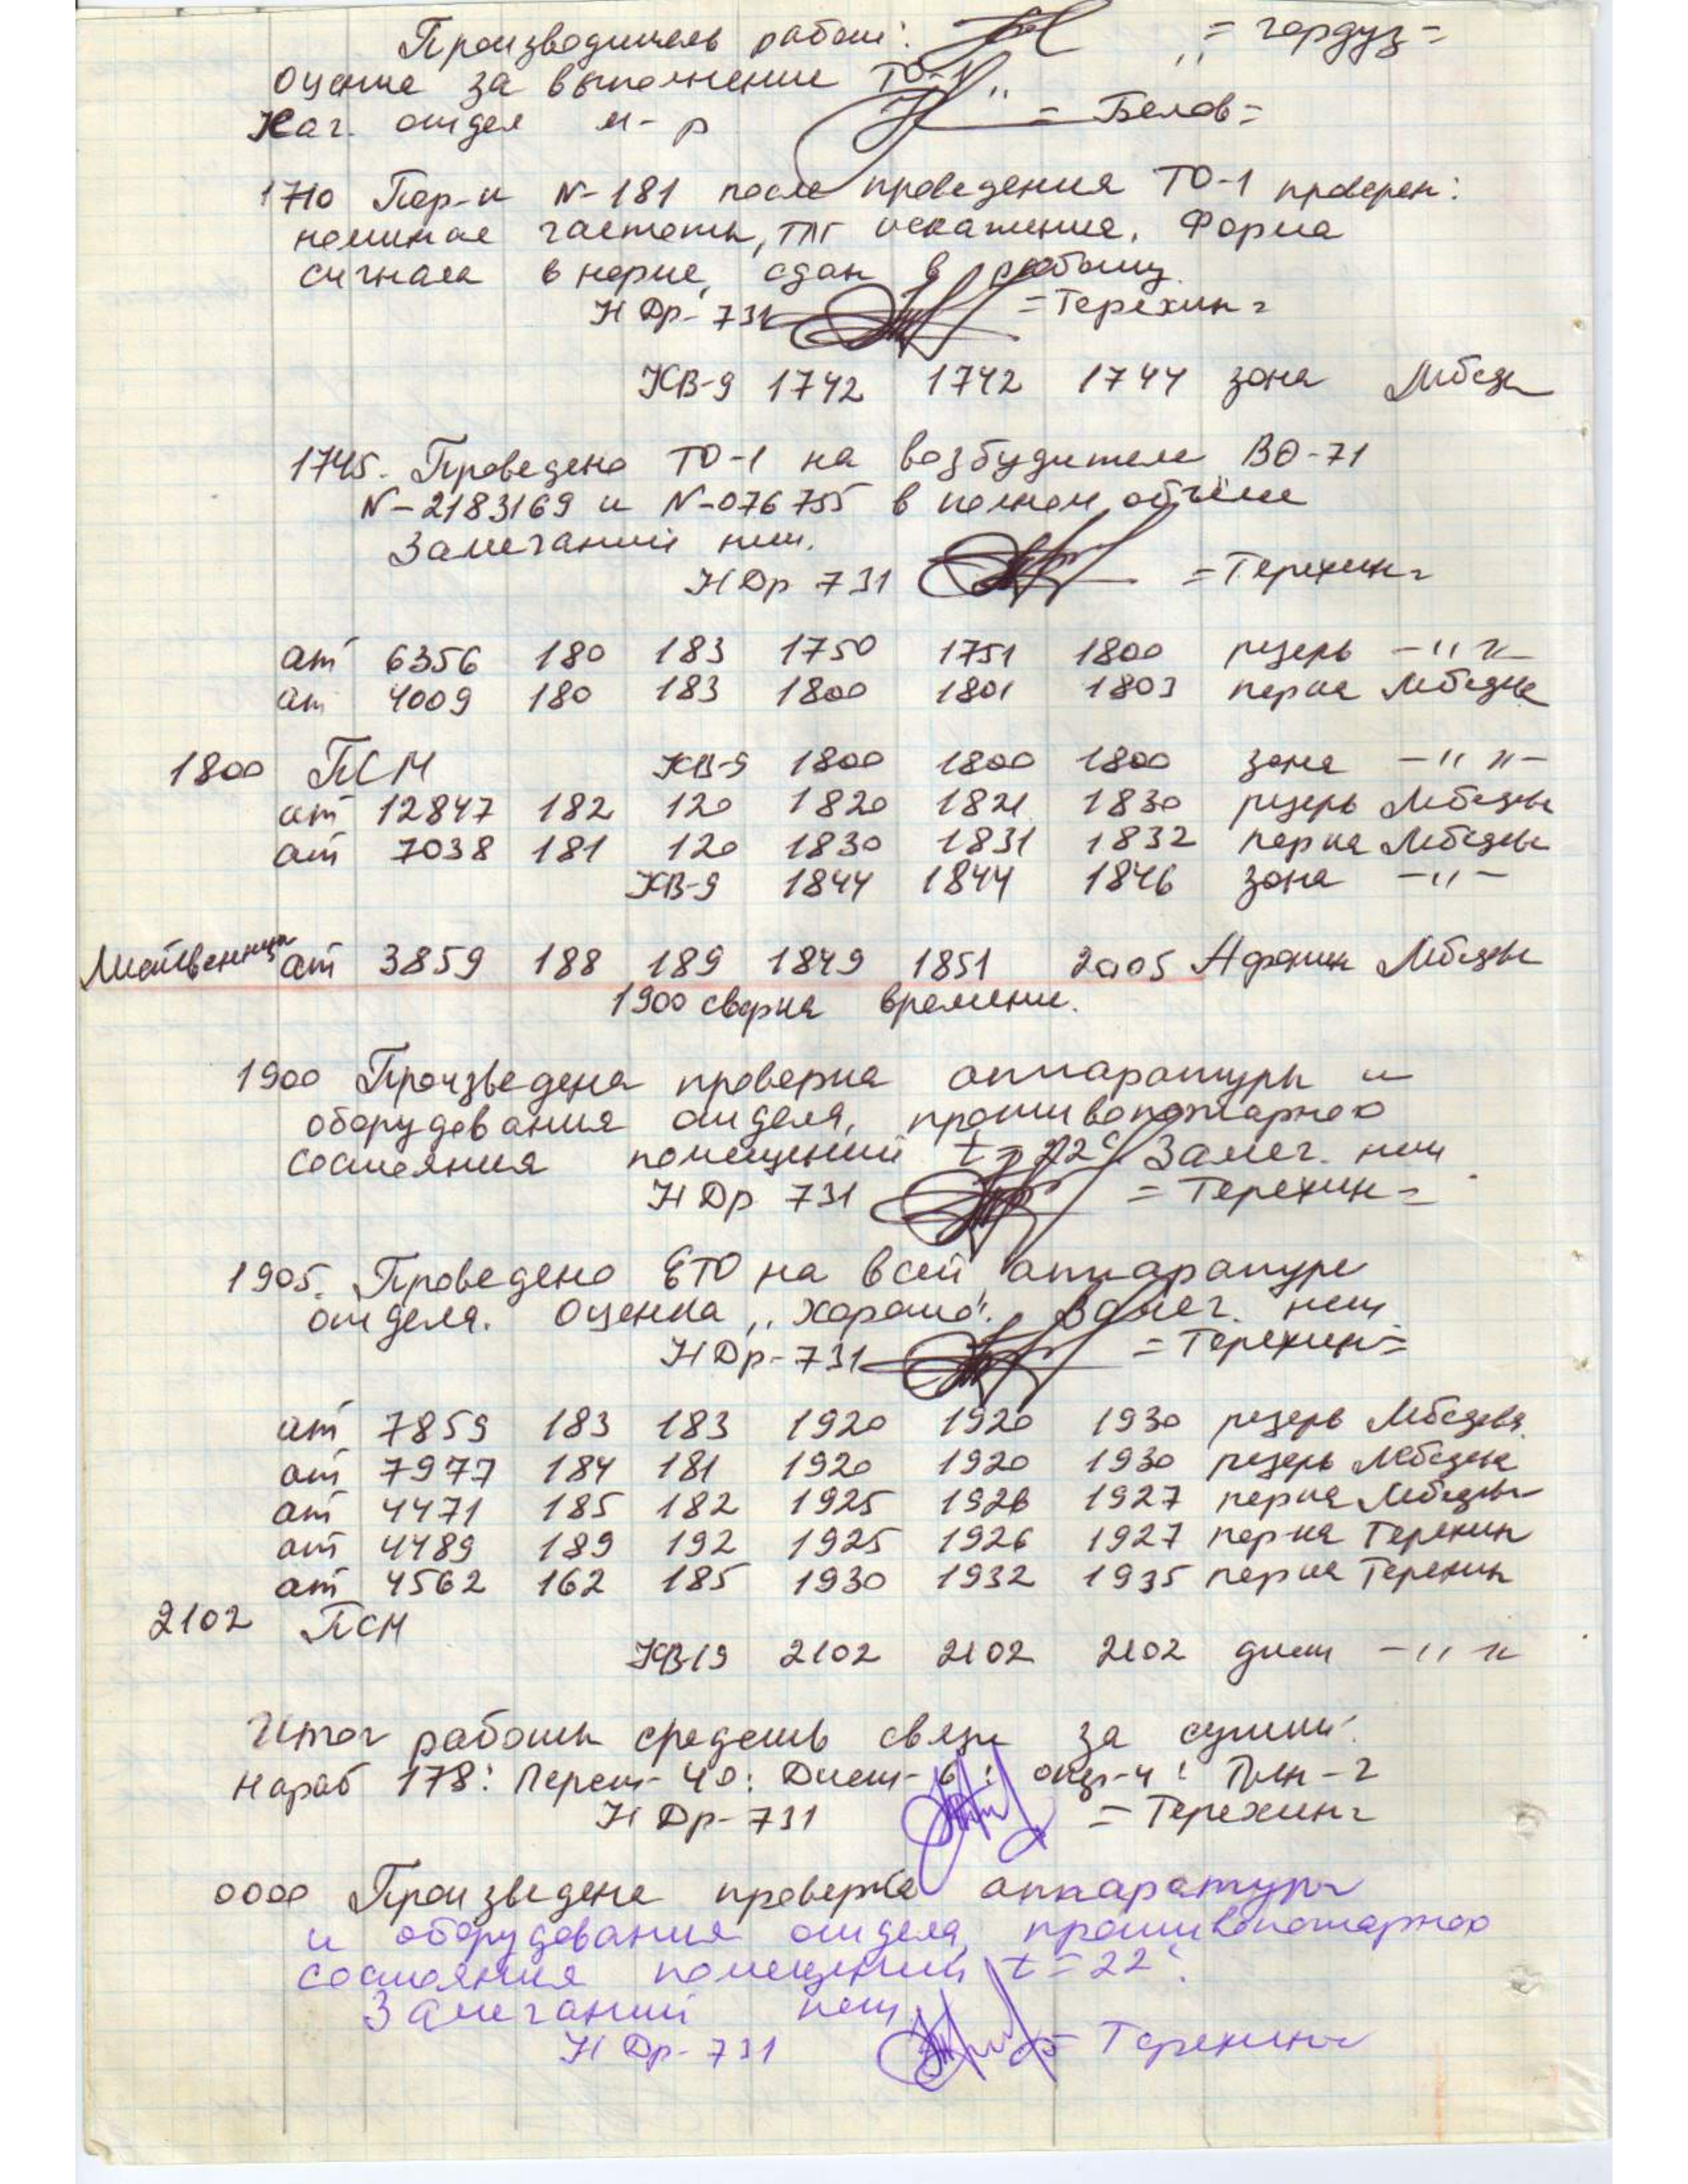 Производитель работ: = Гордуз =
Оценка за выполнение ТО-1 „ "
Нач. отдел м-р = Белов =
1710 Пер-к N-181 после проведения ТО-1 проверен:
номинал частоты, ТЛГ искажения. Форма
сигнала в норме, сдан в работу.
НДр-731 = Терехин =
КВ-9 1742 1742 1744 зона Лебедев
1745. Проведено ТО-1 на возбудителе ВО-71
N-2183169 и N-076755 в полном объёме
Замечаний нет.
НДр 731 = Терехин =
ат 6356 180 183 1750 1751 1800 резерв -"-
ат 4009 180 183 1800 1801 1803 пер-ка Лебедев
1800 ПСМ КВ-9 1800 1800 1800 зона -"-
ат 12847 182 120 1820 1821 1830 резерв Лебедев
ат 7038 181 120 1830 1831 1832 пер-ка Лебедев
КВ-9 1844 1844 1846 зона -"-
Лиственница ат 3859 188 189 1849 1851 2005 Афонин Лебедев
1900 сверка времени.
1900 Произведена проверка аппаратуры и
оборудования отдела, противопожарного
состояния помещений t = 22° Замеч. нет
НДр 731 = Терехин =
1905. Проведено ЕТО на всей аппаратуре
отдела. Оценка „хорошо". Замеч. нет
НДр-731 = Терехин =
ат 7859 183 183 1920 1920 1930 резерв Лебедев
ат 7977 184 181 1920 1920 1930 резерв Лебедев
ат 4471 185 182 1925 1926 1927 пер-ка Лебедев
ат 4489 189 192 1925 1926 1927 пер-ка Терехин
ат 4562 162 185 1930 1932 1935 пер-ка Терехин
2102 ПСМ
КВ19 2102 2102 2102 дист -"-
Итог работы средств связи за сутки:
Нараб 178: Перест-40: Дист-6: -4: -2
НДр-731 = Терехин =
0000 Произведена проверка аппаратуры
и оборудования отдела, противопожарного
состояния помещений t = 22°.
Замечаний нет
НДр-731 = Терехин =